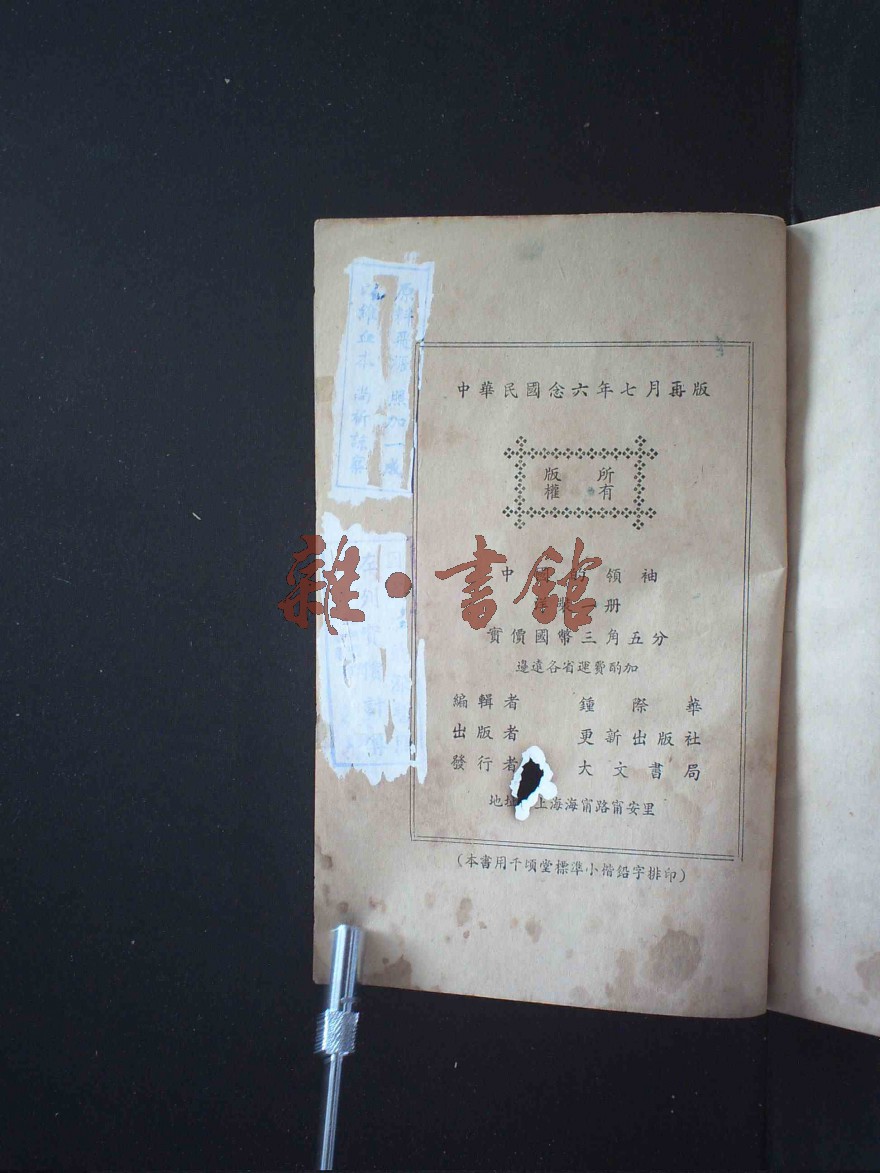 中華民國念六年七月再版
版權所有
中國的領袖
裝一册
實價國幣三角五分
邊遠各省運費酌加
編輯者 鍾際華
出版者 更新出版社
發行者 大文書局
地址 上海海甯路甯安里
(本書用千頃堂標準小楷鉛字排印)
雜·書館
原料飛漲 照加一成
維血本 尚祈